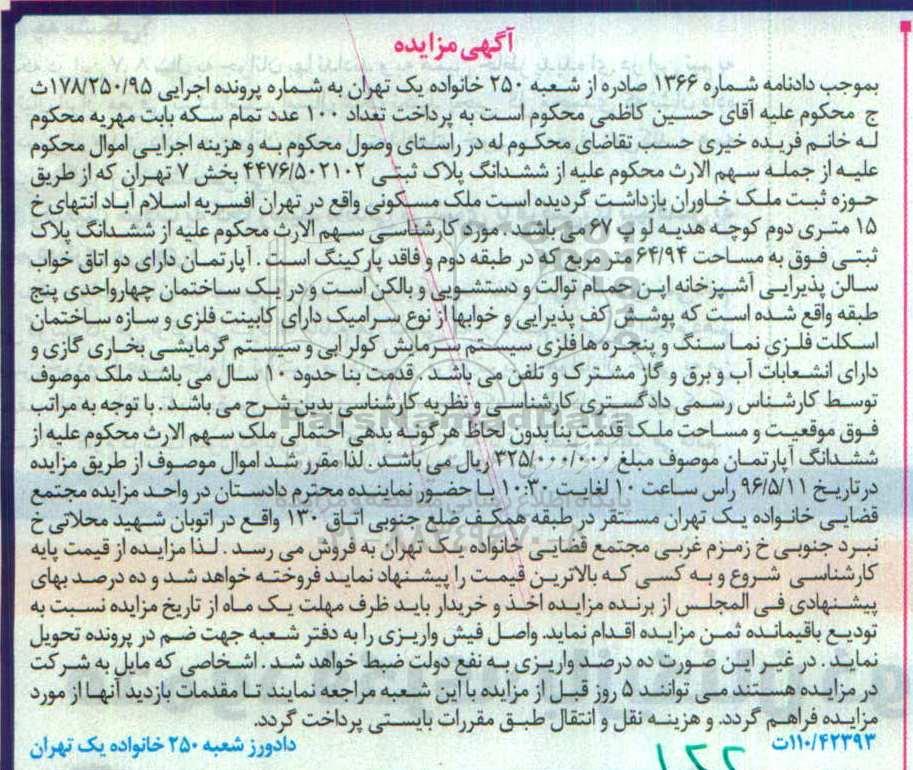 آگهی مزایده
بموجب دادنامه شماره ۱۳۶۶ صادره از شعبه ۲۵۰ خانواده یک تهران به شماره پرونده اجرایی ۱۷۸/۲۵۰/۹۵ث
ج محکوم علیه آقای حسین کاظمی محکوم است به پرداخت تعداد ۱۰۰ عدد تمام سکه بابت مهریه محکوم
له خانم فریده خیری حسب تقاضای محکوم له در راستای وصول محکوم به و هزینه اجرایی اموال محکوم
علیه از جمله سهم الارث محکوم علیه از ششدانگ پلاک ثبتی ۴۴۷۶/۵۰۲۱۰۲ بخش ۷ تهران که از طریق
حوزه ثبت ملک خاوران بازداشت گردیده است ملک مسکونی واقع در تهران افسریه اسلام آباد انتهای خ
۱۵ متری دوم کوچه هدیه لو پ ۶۷ می باشد . مورد کارشناسی سهم الارث محکوم علیه از ششدانگ پلاک
ثبتی فوق به مساحت ۶۴/۹۴ متر مربع که در طبقه دوم و فاقد پارکینگ است . آپارتمان دارای دو اتاق خواب
سالن پذیرایی آشپزخانه اپن حمام توالت و دستشویی و بالکن است و در یک ساختمان چهارواحدی پنج
طبقه واقع شده است که پوشش کف پذیرایی و خوابها از نوع سرامیک دارای کابینت فلزی و سازه ساختمان
اسکلت فلزی نما سنگ و پنجره ها فلزی سیستم سرمایش کولر ابی و سیستم گرمایشی بخاری گازی و
دارای انشعابات آب و برق و گاز مشترک و تلفن می باشد . قدمت بنا حدود ۱۰ سال می باشد ملک موصوف
توسط کارشناس رسمی دادگستری کارشناسی و نظریه کارشناسی بدین شرح می باشد . با توجه به مراتب
فوق موقعیت و مساحت ملک قدمت بنا بدون لحاظ هر گونه بدهی احتمالی ملک سهم الارث محکوم علیه از
ششدانگ آپارتمان موصوف مبلغ ۳۲۵/۰۰۰/۰۰۰ ریال می باشد . لذا مقرر شد اموال موصوف از طریق مزایده
در تاریخ ۹۶/۵/۱۱ راس ساعت ۱۰ لغایت ۱۰:۳۰ با حضور نماینده محترم دادستان در واحد مزایده مجتمع
قضایی خانواده یک تهران مستقر در طبقه همکف ضلع جنوبی اتاق ۱۳۰ واقع در اتوبان شهید محلاتی خ
نبرد جنوبی خ زمزم غربی مجتمع قضایی خانواده یک تهران به فروش می رسد . لذا مزایده از قیمت پایه
کارشناسی شروع و به کسی که بالاترین قیمت را پیشنهاد نماید فروخته خواهد شد و ده درصد بهای
پیشنهادی فی المجلس از برنده مزایده اخذ و خریدار باید ظرف مهلت یک ماه از تاریخ مزایده نسبت به
تودیع باقیمانده ثمن مزایده اقدام نماید. واصل فیش واریزی را به دفتر شعبه جهت ضم در پرونده تحویل
نماید . در غیر این صورت ده درصد واریزی به نفع دولت ضبط خواهد شد . اشخاصی که مایل به شرکت
در مزایده هستند می توانند ۵ روز قبل از مزایده با این شعبه مراجعه نمایند تا مقدمات بازدید آنها از مورد
مزایده فراهم گردد. و هزینه نقل و انتقال طبق مقررات بایستی پرداخت گردد.
۱۱۰/۴۲۳۹۳ت دادورز شعبه ۲۵۰ خانواده یک تهران